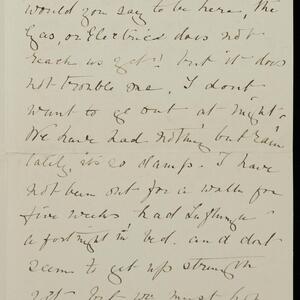 would you say to be here, the
Gas, or Electrics does not
reach us yet!! but it does
not trouble me. I dont
want to go out at night.
We have had nothing but rain
lately, its so damp. I have
not been out for a walk for
five weeks had Influenza
a fortnight in bed. and dont
seem to get up strength
yet, but we must hope